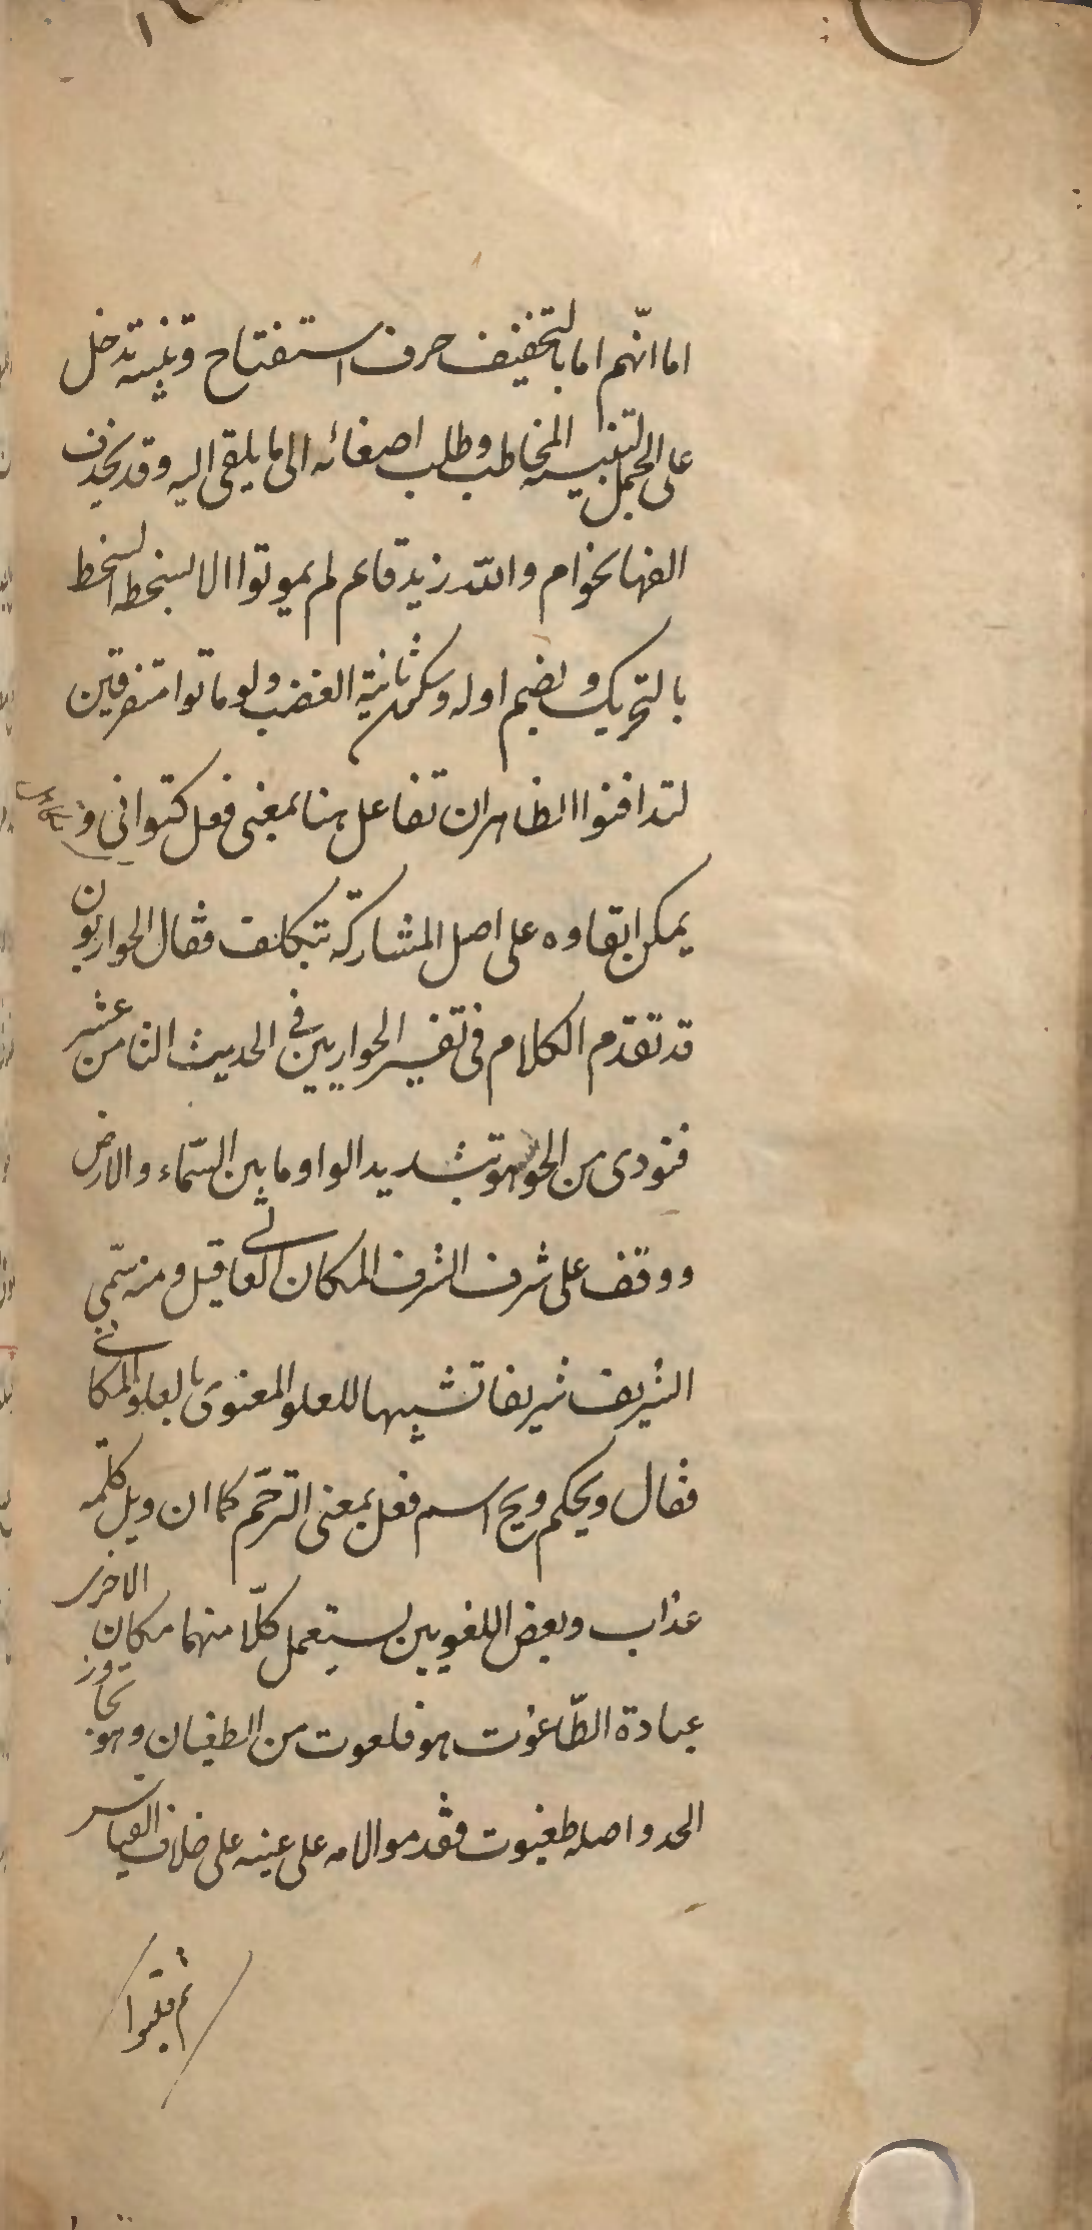 اما انّهم اما بالتخفيف حرف استفتاح وتنبيه تدخل
على الجمل لتنبيه المخاطب وطلب اصغائه الى ما يلقى اليه وقد يحذف
الفها نحو ام والله زيد قائم لم يموتوا الا بسخطه السخط
بالتحريك وبضم اوله وسكون ثانيه الغضب ولو ماتوا متفرقين
لتدافنوا الظاهر ان تفاعل هنا بمعنى فعل كتوانى و
يمكن ابقاوه على اصل المشاركة بتكلف فقال الحواريون
قد تقدّم الكلام فى تفسير الحواريين فى الحديث الثامن عشر
فنودى من الجو هو بتشديد الواو ما بين السّماء والارض
ووقف على شرف الشرف المكان العالى قيل ومنه سمّى
الشريف شريفا تشبيها للعلو المعنوى بالعلو المكانى
فقال ويحكم ويح اسم فعل بمعنى الترحّم كما ان ويل كلمة
عذاب وبعض اللغويين يستعمل كلّا منهما مكان الاخرى
عبادة الطّاغوت هو فلعوت من الطغيان وهو تجاوز
الحد واصله طغيوت فقدموا لامه على عينه على خلاف القياس
ثم قلبوا